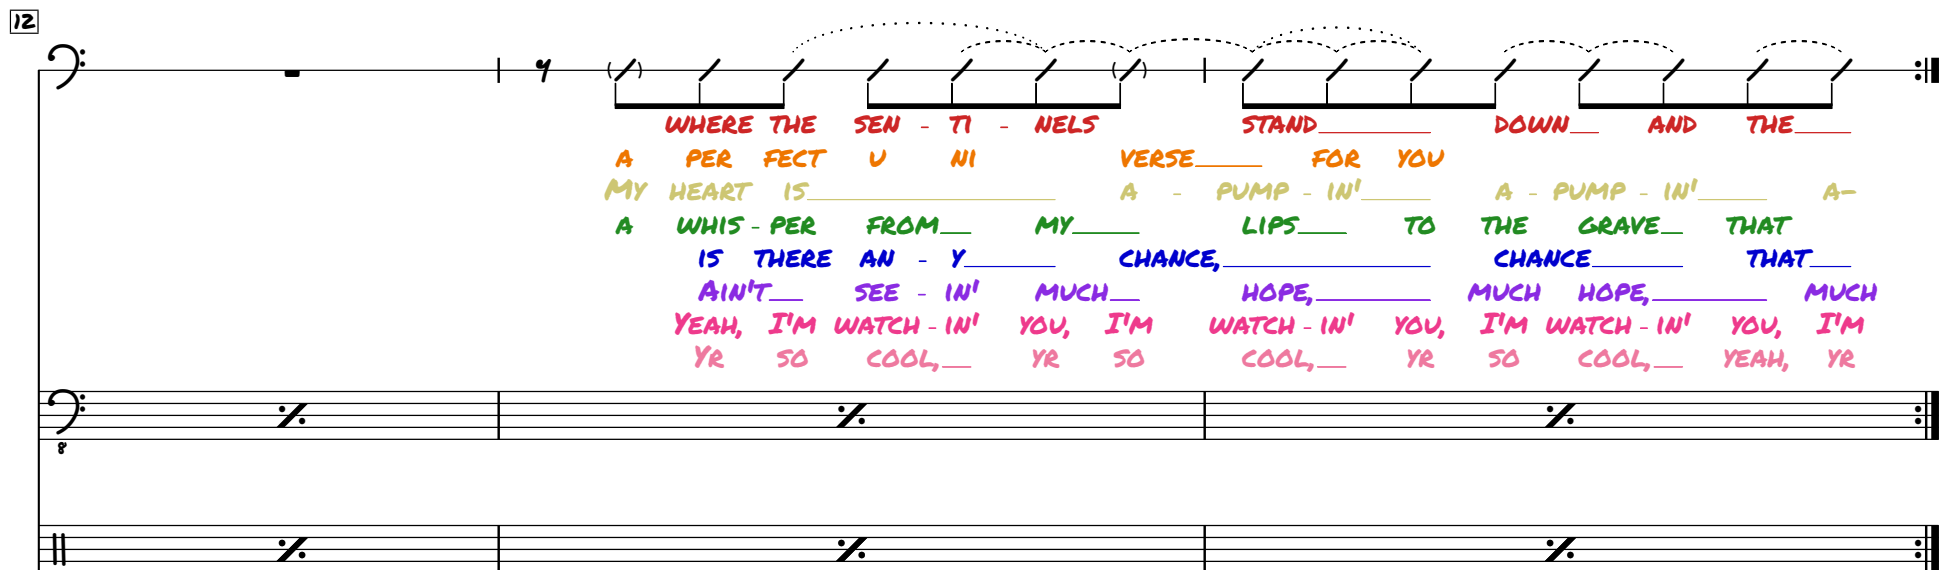 12
WHERE THE SEN - TI - NELS STAND____ DOWN__ AND THE___
A PER FECT U NI VERSE____ FOR YOU
MY HEART IS____ A - PUMP - IN'____ A - PUMP - IN'____ A-
A WHIS - PER FROM__ MY____ LIPS___ TO THE GRAVE__ THAT
IS THERE AN - Y____ CHANCE,____ CHANCE____ THAT___
AIN'T__ SEE - IN' MUCH__ HOPE,____ MUCH HOPE,____ MUCH
YEAH, I'M WATCH - IN' YOU, I'M WATCH - IN' YOU, I'M WATCH - IN' YOU, I'M
YR SO COOL,__ YR SO COOL,__ YR SO COOL,__ YEAH, YR
8